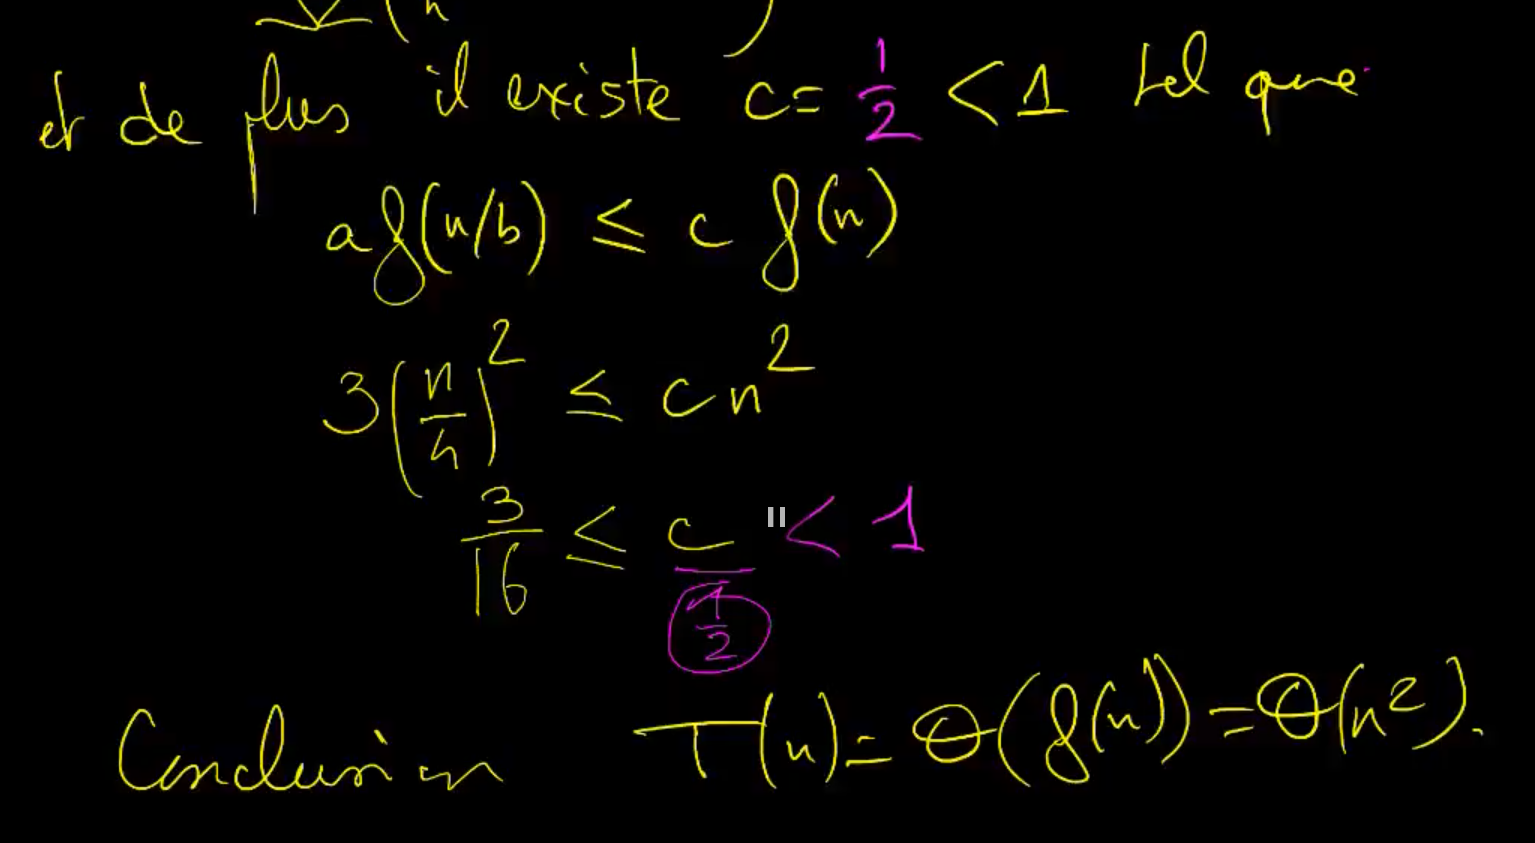 et de plus il existe c = 1/2 < 1 tel que
a f(n/b) ≤ c f(n)
3(n/4)² ≤ c n²
3/16 ≤ c < 1
1/2
Conclusion T(n) = Θ(f(n)) = Θ(n²).